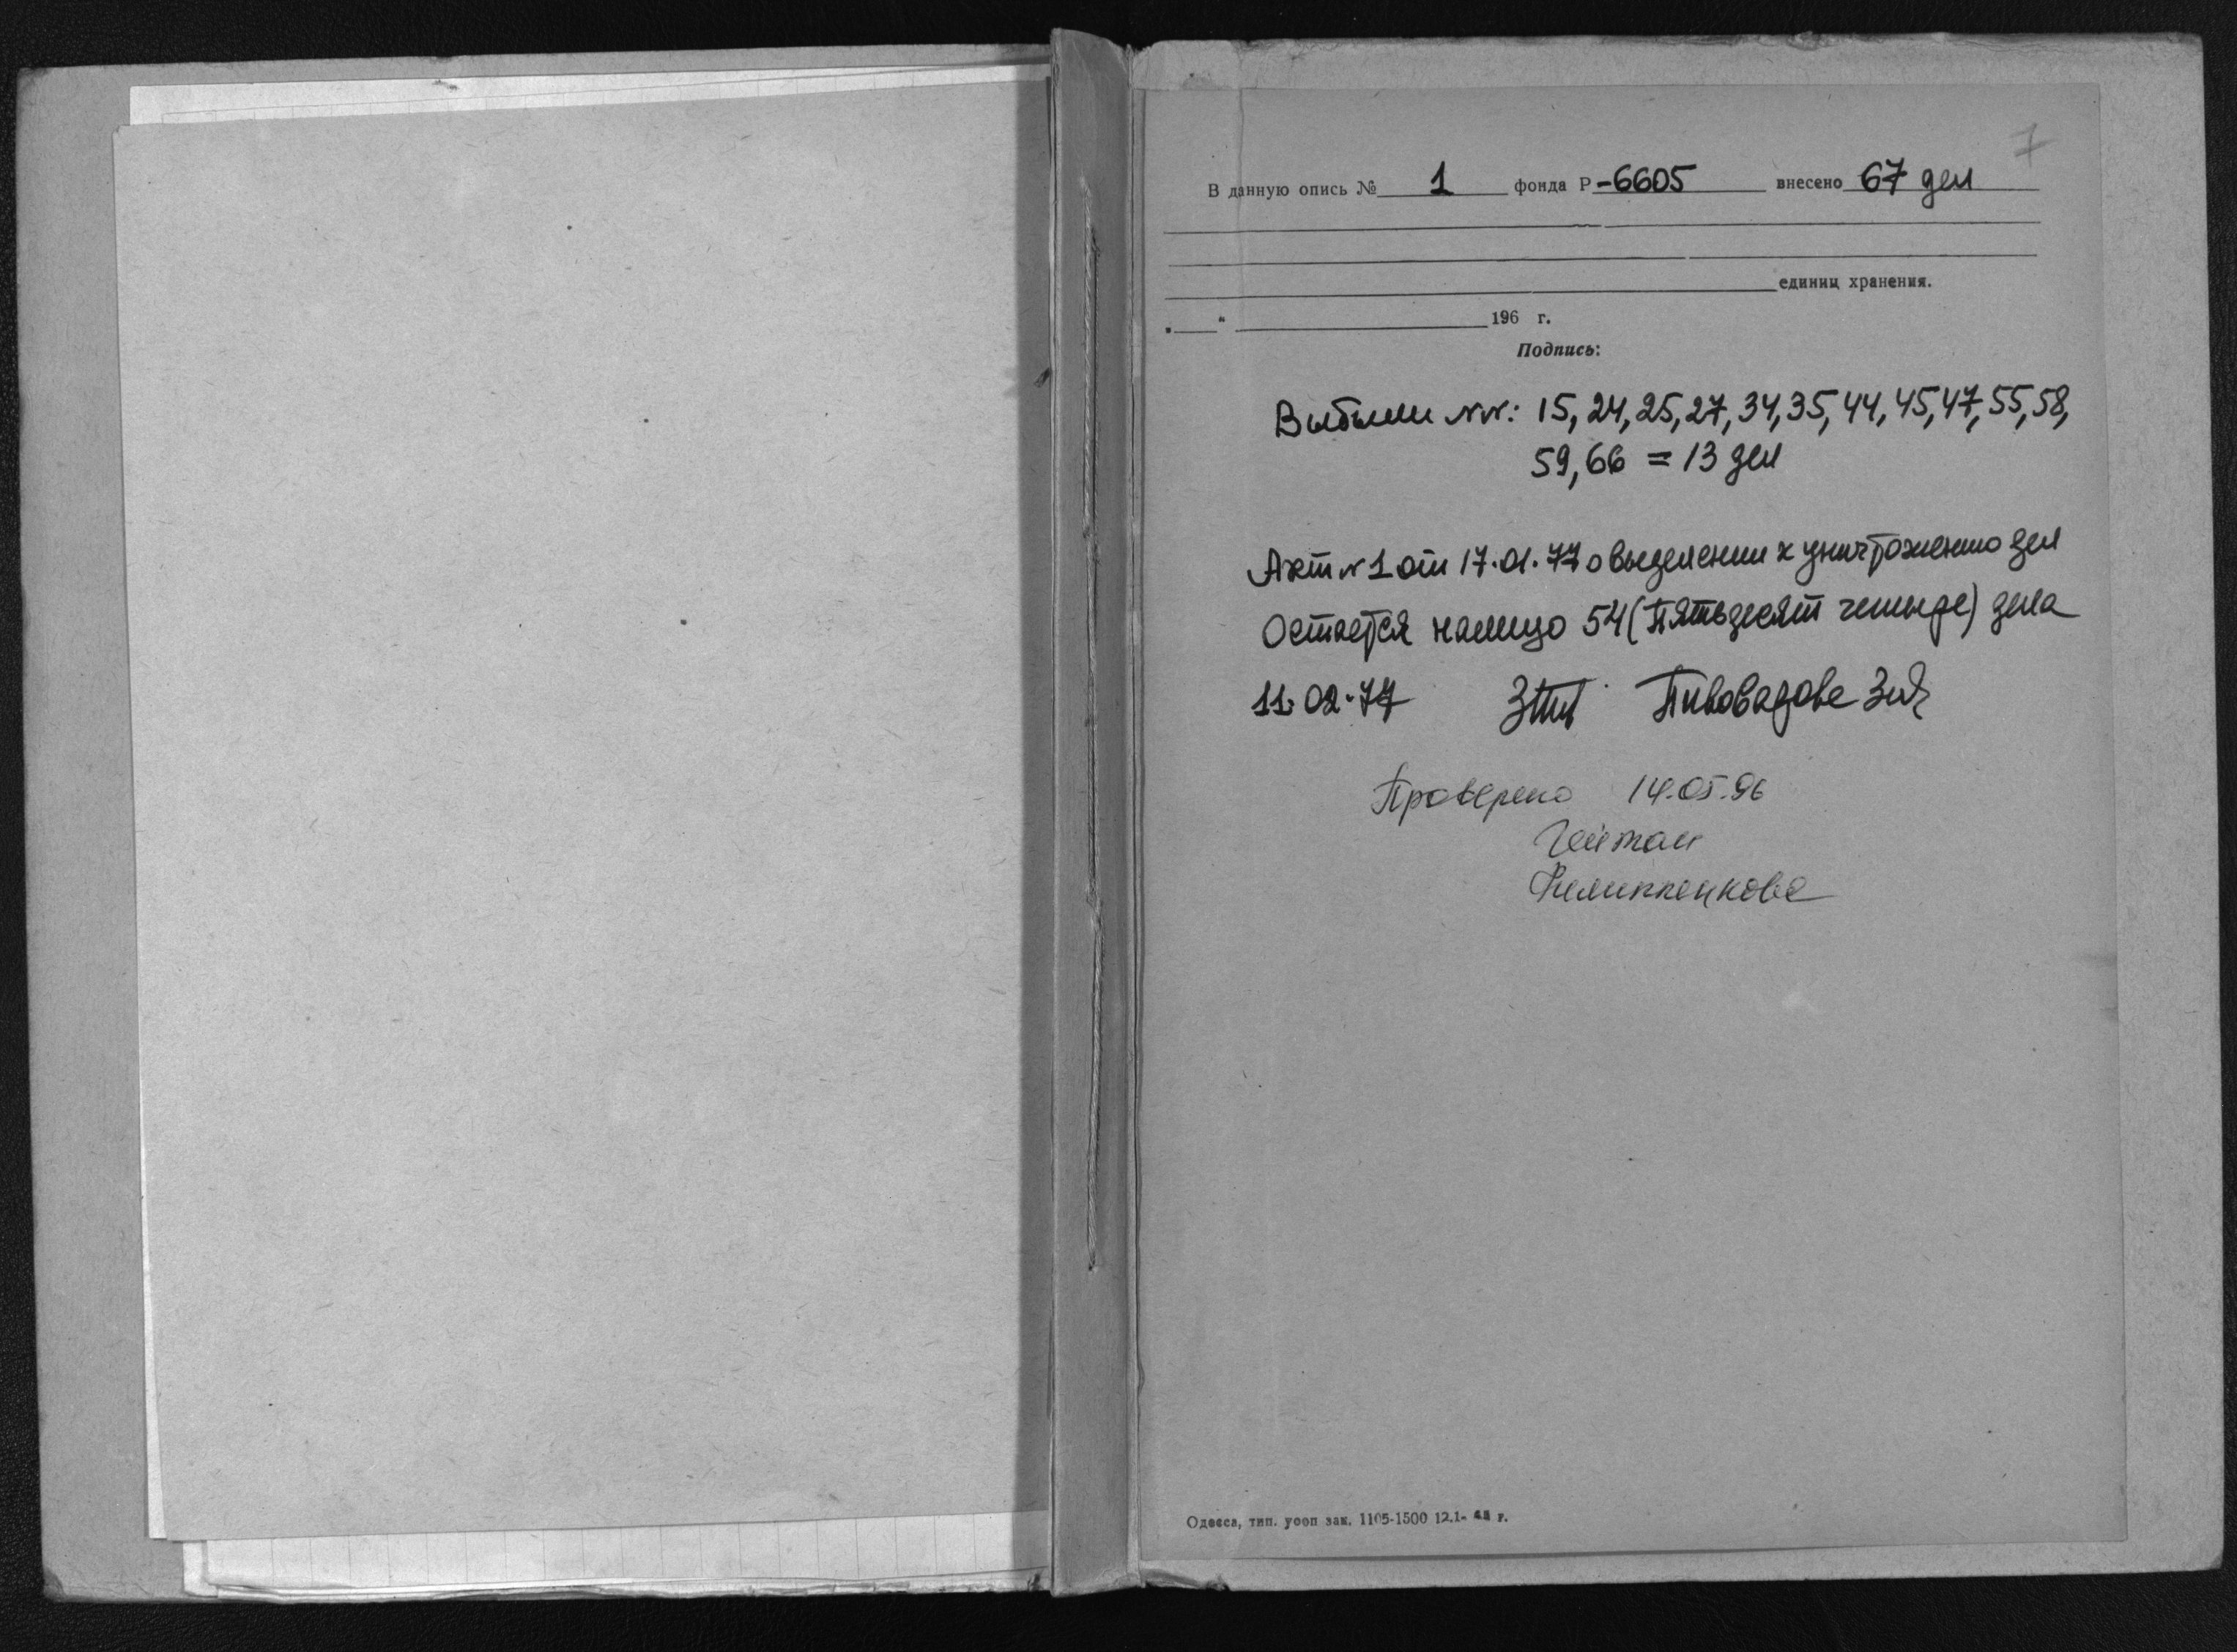 7
В данную опись № 1 фонда Р -6605 внесено 67 дел
единиц хранения.
„ “ 196 г.
Подпись:
Выбыли №№: 15, 24, 25, 27, 34, 35, 44, 45, 47, 55, 58,
59, 66 = 13 дел
Акт № 1 от 17.01.77 о выделении к уничтожению дел
Остается налицо 54 (Пятьдесят четыре) дела
11.02.77 Пивоварова
Проверено 14.05.96
Гейтан
Филиппенкова
Одесса, тип. уооп зак. 1105-1500 12.1- г.